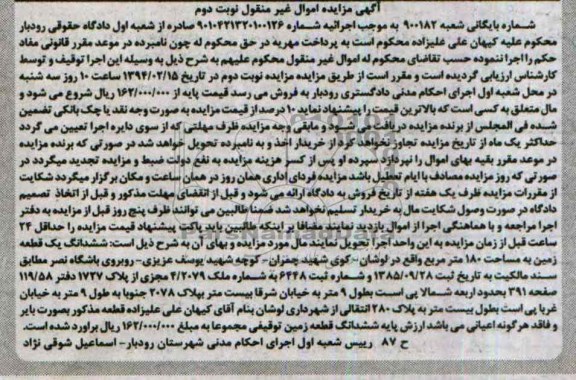 آگهی مزایده اموال غیر منقول نوبت دوم
شماره بایگانی شعبه ۹۰۰۱۸۲ به موجب اجرائیه شماره ۹۰۱۰۴۲۱۳۲۰۱۰۰۱۲۶ صادره از شعبه اول دادگاه حقوقی رودبار
محکوم علیه کیهان علی علیزاده محکوم است به پرداخت مهریه در حق محکوم له چون نامبرده در موعد مقرر قانونی مفاد
حکم را اجرا ننموده حسب تقاضای محکوم له اموال غیر منقول محکوم علیهم به شرح ذیل به وسیله این اجرا توقیف و توسط
کارشناس ارزیابی گردیده است و مقرر است از طریق مزایده مزایده نوبت دوم در تاریخ ۱۳۹۴/۰۲/۱۵ ساعت ۱۰ روز سه شنبه
در محل شعبه اول اجرای احکام مدنی دادگستری رودبار به فروش می رسد قیمت پایه از ۱۶۲/۰۰۰/۰۰۰ ریال شروع می شود و
مال متعلق به کسی است که بالاترین قیمت را پیشنهاد نماید ۱۰ درصد از قیمت مزایده به صورت وجه نقد یا چک بانکی تضمین
شده فی المجلس از برنده مزایده دریافت می شود و مابقی وجه مزایده ظرف مهلتی که از سوی دایره اجرا تعیین می گردد
حداکثر یک ماه از تاریخ مزایده تجاوز نخواهد کرد از خریدار اخذ و به نامبرده تحویل خواهد شد در صورتی که برنده مزایده
در موعد مقرر بقیه بهای اموال را نپردازد سپرده او پس از کسر هزینه مزایده به نفع دولت ضبط و مزایده تجدید میگردد در
صورتی که روز مزایده مصادف با ایام تعطیل باشد مزایده فردای اداری همان روز در همان ساعت و مکان برگزار میگردد شکایت
از مقررات مزایده ظرف یک هفته از تاریخ فروش به دادگاه ارائه می شود و قبل از انقضای مهلت مذکور و قبل از اتخاذ تصمیم
دادگاه در صورت وصول شکایت مال به خریدار تسلیم نخواهد شد ضمنا طالبین می توانند ظرف پنج روز قبل از مزایده به دفتر
اجرا مراجعه و با هماهنگی اجرا از اموال بازدید نمایند مضافا بر اینکه طالبین باید پاکت پیشنهاد قیمت مزایده را حداقل ۲۴
ساعت قبل از زمان مزایده به این واحد اجرا تحویل نمایند مال مورد مزایده و بهای آن به شرح ذیل است: ششدانگ یک قطعه
زمین به مساحت ۱۸۰ متر مربع واقع در لوشان - کوی شهید چمران - کوچه شهید یوسف عزیزی - روبروی باشگاه نصر مطابق
سند مالکیت به تاریخ ثبت ۱۳۸۵/۰۹/۲۸ و شماره ثبت ۶۴۴۸ به شماره ملک ۴/۲۰۷۹ مجزی از پلاک ۱۷۲۷ دفتر ۱۱۹/۵۸
صفحه ۳۹۱ بحدود اربعه شمالا پی است بطول ۹ متر به خیابان شرقا بیست متر بهپلاک ۲۰۷۸ جنوبا به طول ۹ متر به خیابان
غربا پی است بطول بیست متر به پلاک ۲۸۰ انتقالی از شهرداری لوشان بنام آقای کیهان علی علیزاده قطعه مذکور بصورت بایر
و فاقد هر گونه اعیانی می باشد ارزش پایه ششدانگ قطعه زمین توقیفی مجموعا به مبلغ ۱۶۲/۰۰۰/۰۰۰ ریال براورد شده است.
ح ۸۷ رییس شعبه اول اجرای احکام مدنی شهرستان رودبار- اسماعیل شوقی نژاد